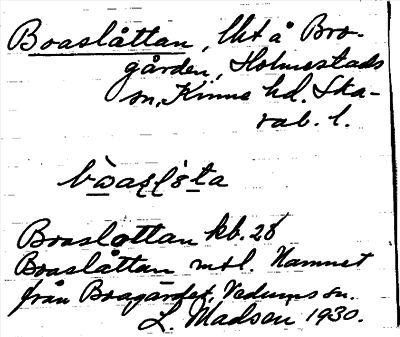 Boaslåttan, lht å Bro-
gården, Holmestads
sn, Kinne hd. Ska-
rab. l.
Boaslottan kb. 28
Boaslåttan mtl. Namnet
från Bragärdet, Vedums sn.
L. Madsen 1930.